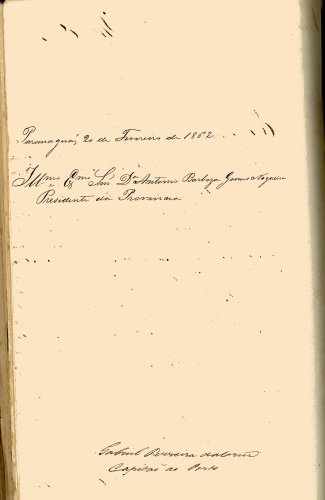 Paranaguá, 20 de Fevereiro de 1862
Illmo. e Exmo. Snr. Dr. Antonio Barboza Gomes Nogueira
Presidente da Provincia
Gabriel Ferreira da Cruz
Capitão do Porto